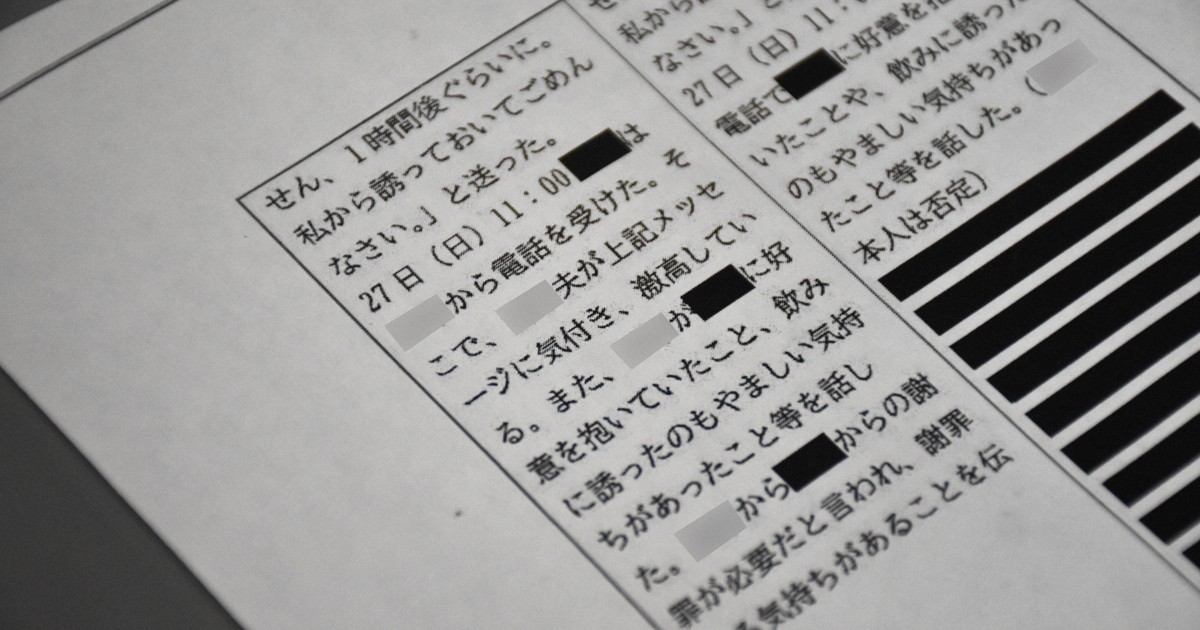 せん、 1時間後ぐらいに。
私から誘っておいてごめん
なさい。」と送った。
27日(日)11:00 は
から電話を受けた。そ
こで、 夫が上記メッセ
ージに気付き、激高してい
る。また、 が に好
意を抱いていたこと、飲み
に誘ったのもやましい気持
ちがあったこと等を話し
た。 から からの謝
罪が必要だと言われ、謝罪
気持ちがあることを伝
私から
なさい。」と
27日(日)11:
電話で に好意を
いたことや、飲みに誘った
のもやましい気持ちがあっ
たこと等を話した。(
本人は否定)